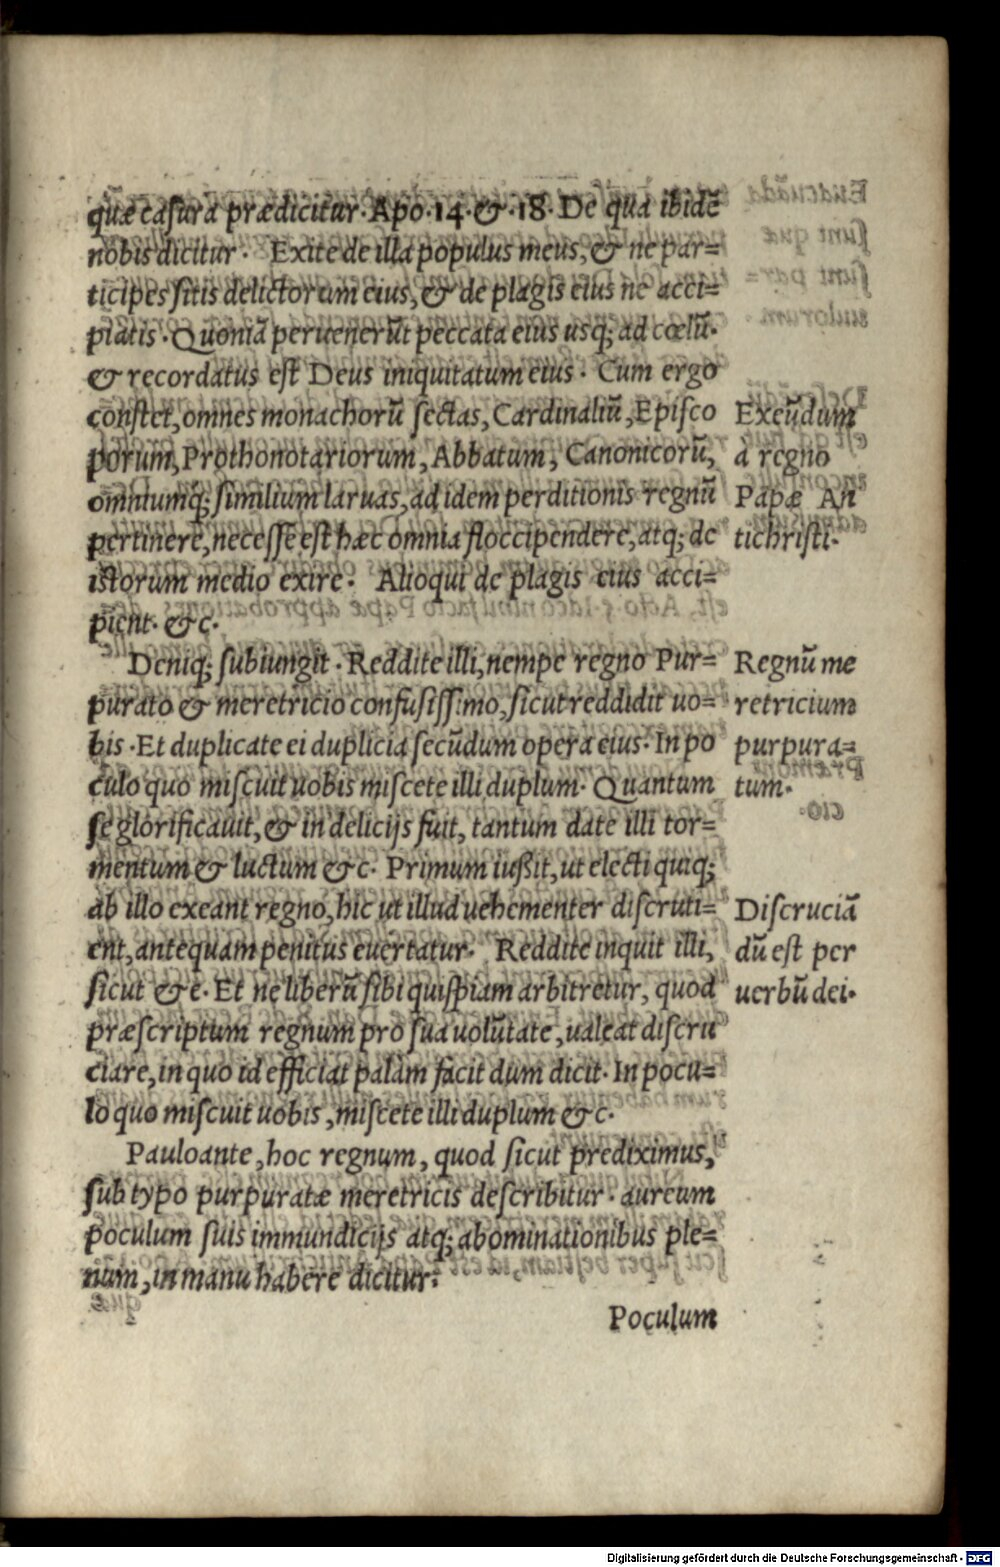 quæ casura prædicitur. Apo. 14. & .18. De qua ibidē
nobis dicitur. Exite de illa populus meus, & ne par=
ticipes sitis delictorum eius, & de plagis eius ne acci=
piatis. Quoniā peruenerūt peccata eius usq; ad cœlū.
& recordatus est Deus iniquitatum eius. Cum ergo
constet, omnes monachorū sectas, Cardinaliū, Episco
porum, Prothonotariorum, Abbatum, Canonicorū,
omniumq; similium laruas, ad idem perditionis regnū
pertinere, necesse est hæc omnia floccipendere, atq; de
istorum medio exire. Alioqui de plagis eius acci=
pient. &c.
Exeūdum
a regno
Papæ An
tichristi.
Deniq; subiungit. Reddite illi, nempe regno Pur=
purato & meretricio confusissimo, sicut reddidit uo=
bis. Et duplicate ei duplicia secūdum opera eius. In po
culo quo miscuit uobis miscete illi duplum. Quantum
se glorificauit, & in delicijs fuit, tantum date illi tor=
mentum & luctum &c. Primum iussit, ut electi quiq;
ab illo exeant regno, hic ut illud uehementer discruti=
ent, antequam penitus euertatur. Reddite inquit illi,
sicut &c. Et ne liberū sibi quispiam arbitretur, quod
præscriptum regnum pro sua uolūtate, ualeat discru
ciare, in quo id efficiat palàm facit dum dicit. In pocu=
lo quo miscuit uobis, miscete illi duplum &c.
Regnū me
retricium
purpura=
tum.
Discruciā
dū est per
uerbū dei.
Pauloante, hoc regnum, quod sicut prediximus,
sub typo purpuratæ meretricis describitur. aureum
poculum suis immundicijs atq; abominationibus ple=
num, in manu habere dicitur.
Poculum
Digitalisierung gefördert durch die Deutsche Forschungsgemeinschaft - DFG